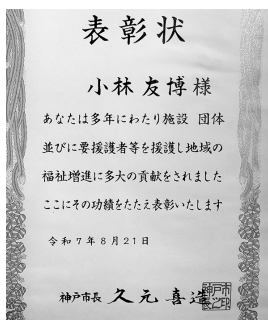 表彰状
小林友博様
あなたは多年にわたり施設 団体
並びに要援護者等を援護し地域の
福祉増進に多大の貢献をされました
ここにその功績をたたえ表彰いたします
令和7年8月21日
神戸市長 久元喜造
神戸市長之印